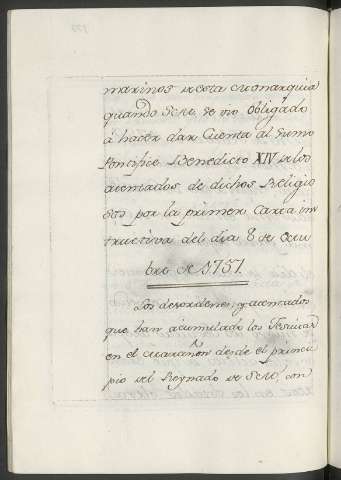 marinos de esta Monarquia
quando Se vio obligado
á hacer dar Cuenta al Sumo
Pontifice Benedicto XIV de los
atentados de dichos Religio
sos por la primera Carta ins
tructiva del dia 8 de Octu
bre de 1757.
Los desordenes, y atentados
que han acumulado los Jesuitas
en el Marañon desde el princi
pio del Reynado de con